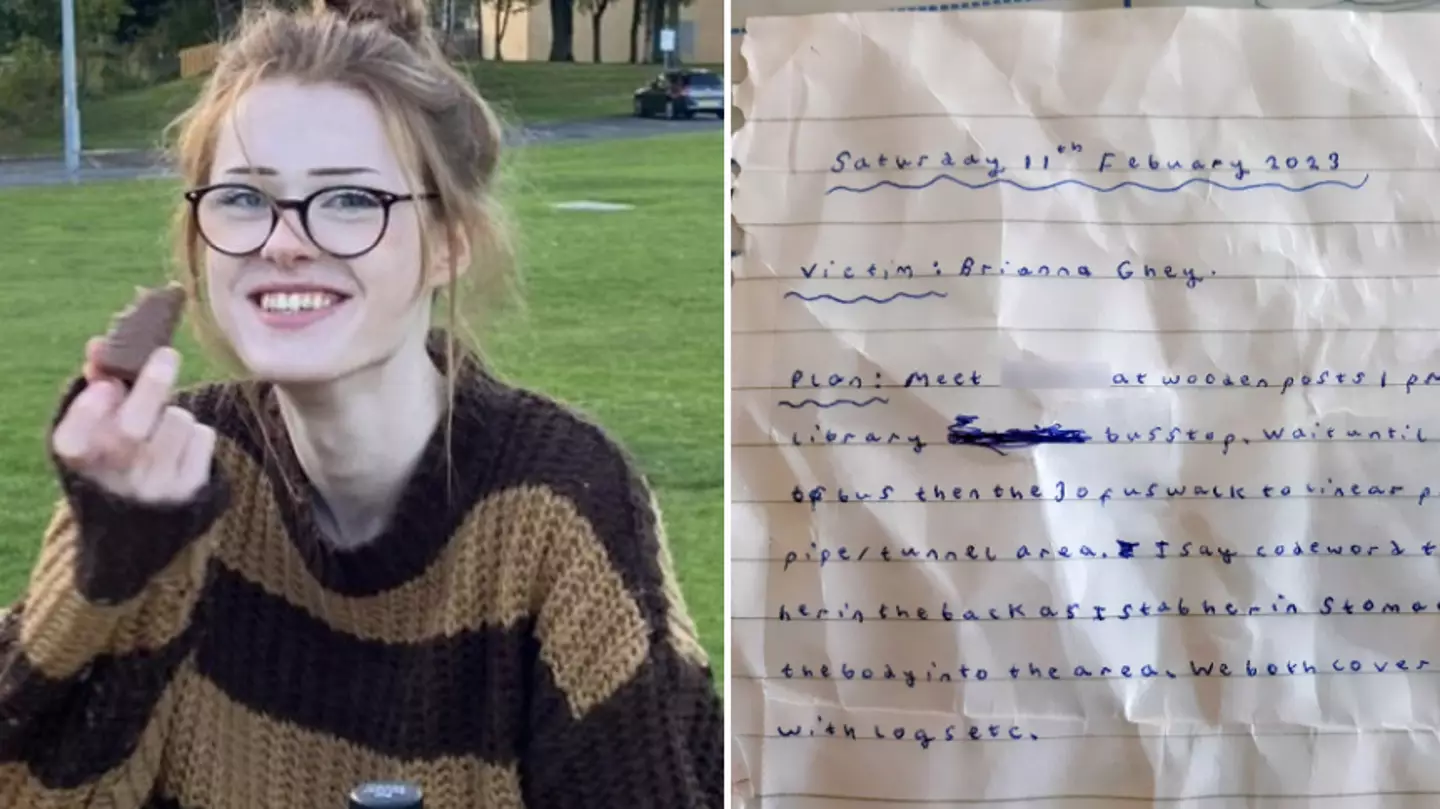 Saturday 11th Febuary 2023
Victim: Brianna Ghey.
Plan: Meet at wooden posts 1 pm
library bus stop. Wait until
bus then the 3 of us walk to linear p
pipe/tunnel area. I say codeword t
her in the back as I stab her in Stoma
the body into the area. We both cover
with logs etc.